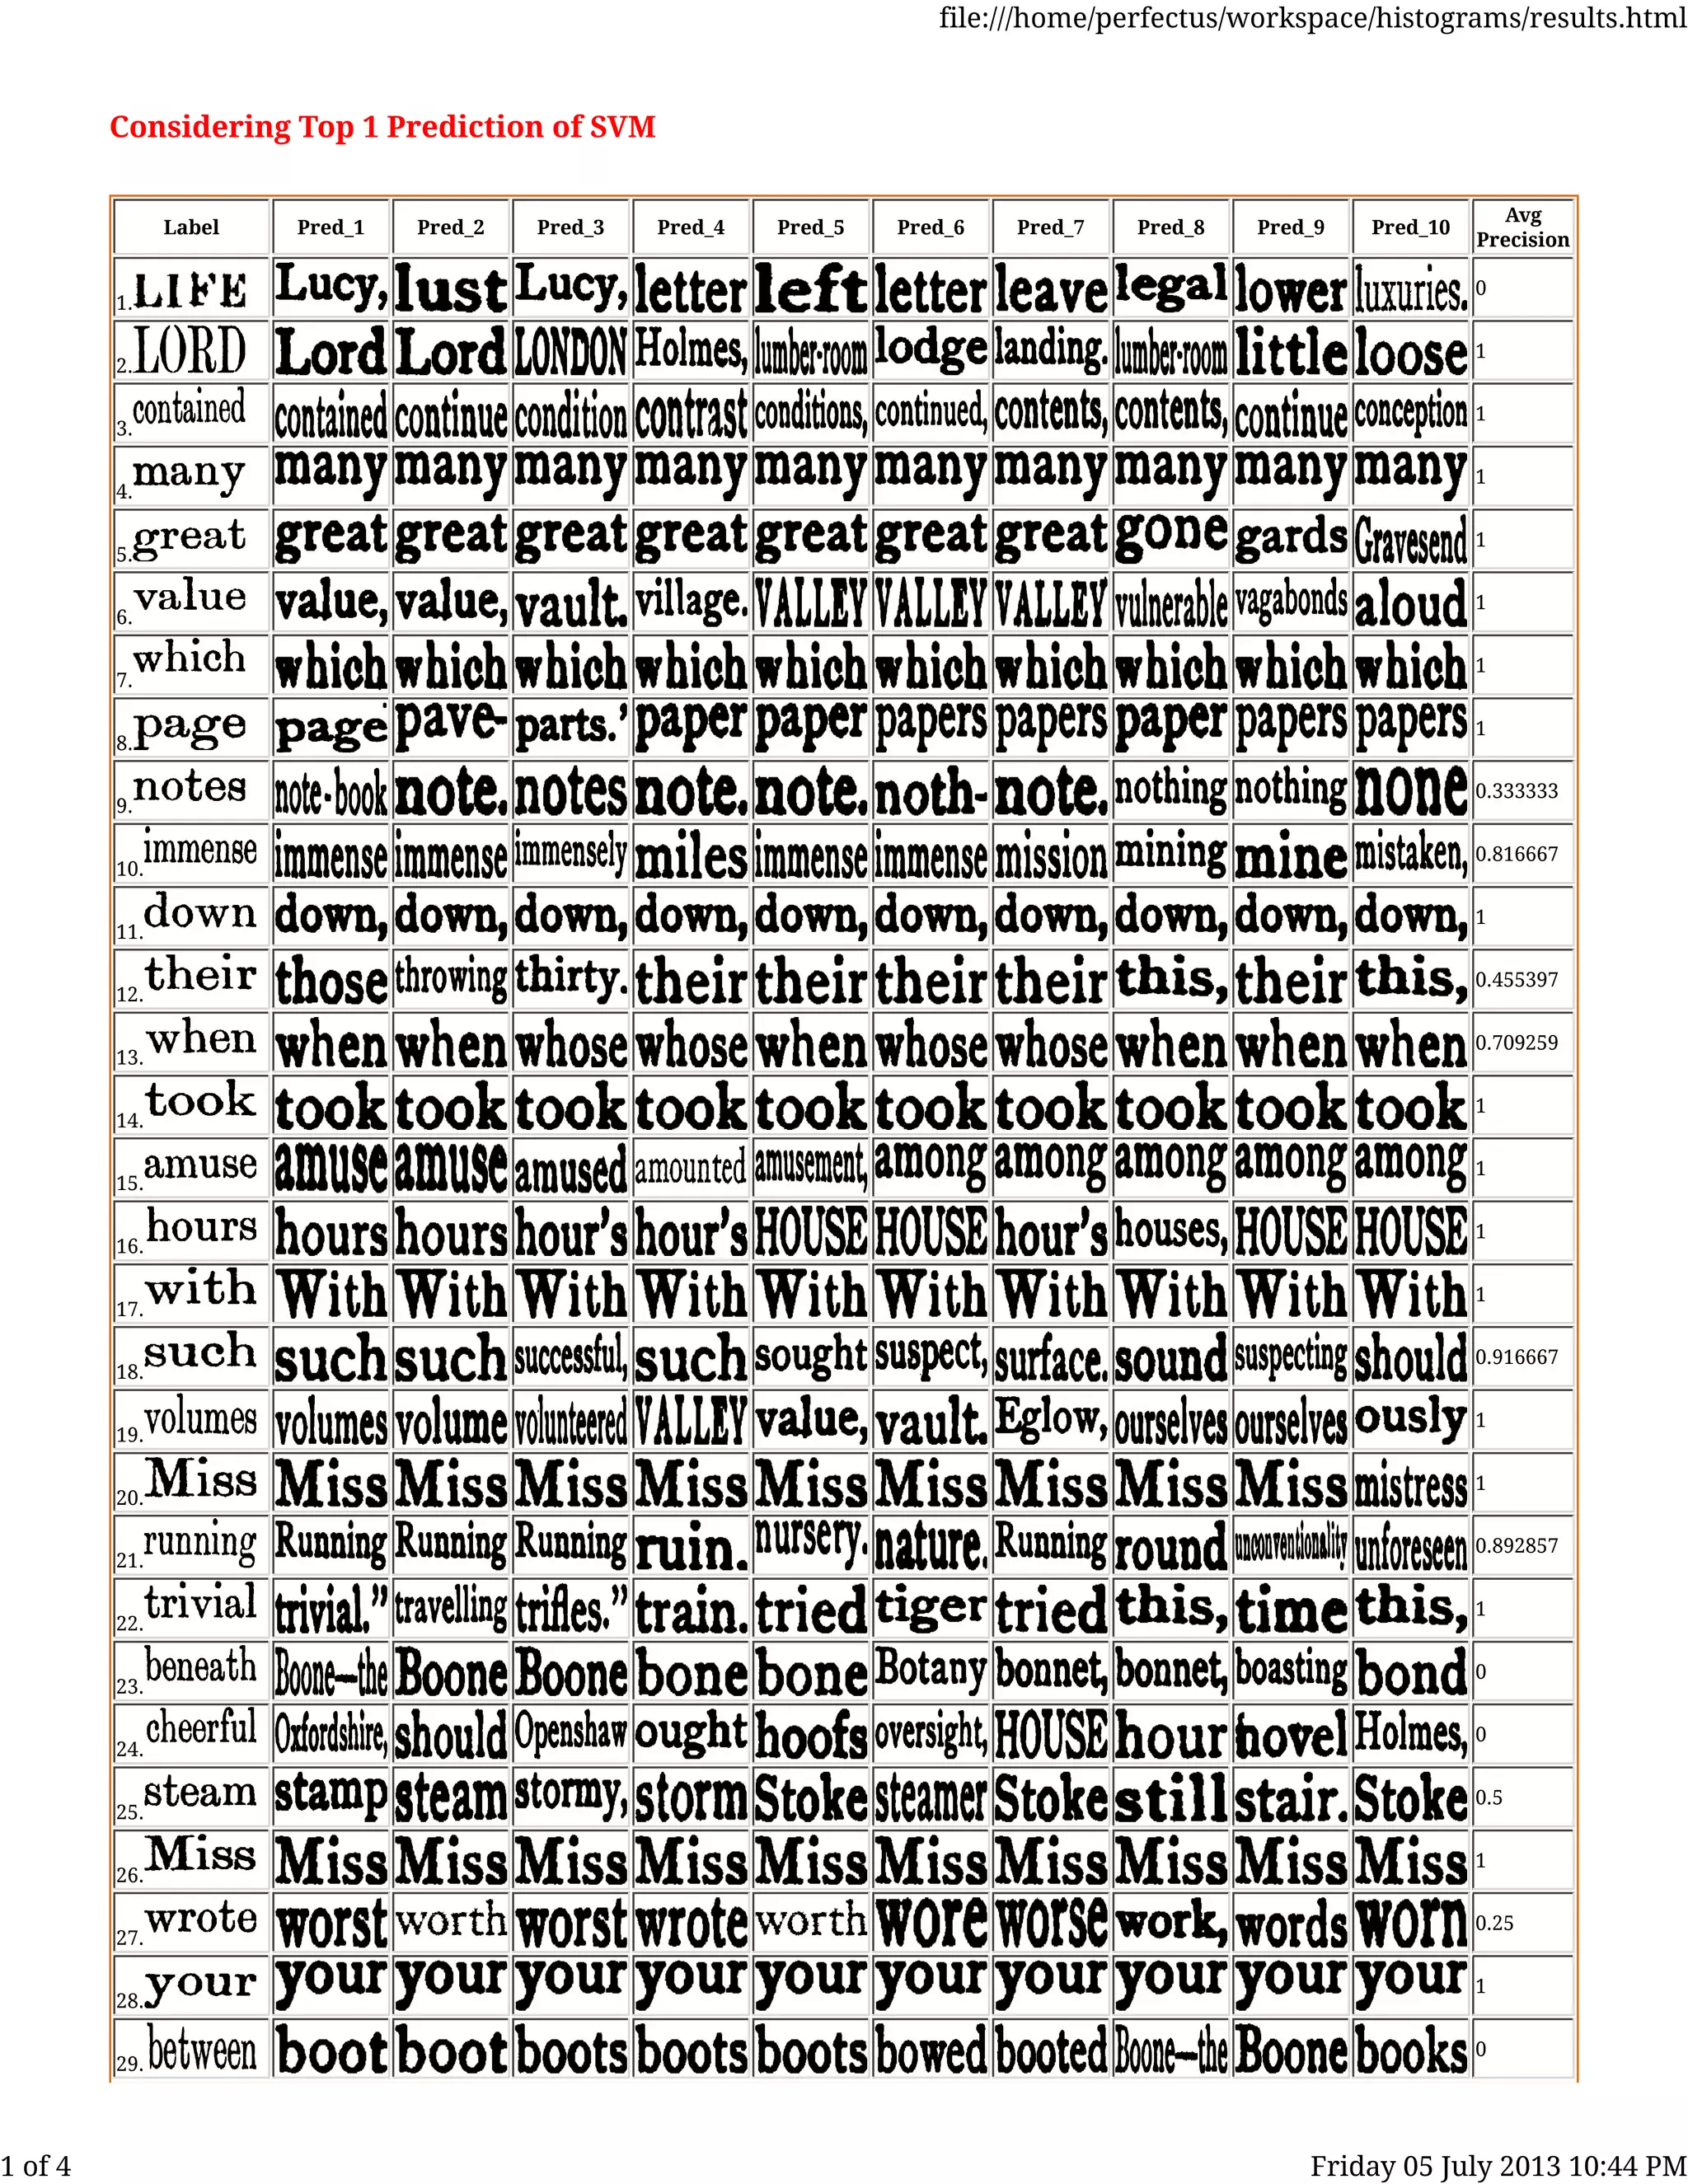 file:///home/perfectus/workspace/histograms/results.html
Considering Top 1 Prediction of SVM
Label Pred_1 Pred_2 Pred_3 Pred_4 Pred_5 Pred_6 Pred_7 Pred_8 Pred_9 Pred_10 Avg Precision
1. LIFE Lucy, lust Lucy, letter left letter leave legal lower luxuries. 0
2. LORD Lord Lord LONDON Holmes, lumber-room lodge landing. lumber-room little loose 1
3. contained contained continue condition contrast conditions, continued, contents, contents, continue conception 1
4. many many many many many many many many many many many 1
5. great great great great great great great great gone gards Gravesend 1
6. value value, value, vault. village. VALLEY VALLEY VALLEY vulnerable vagabonds aloud 1
7. which which which which which which which which which which which 1
8. page page pave- parts.' paper paper papers papers paper papers papers 1
9. notes note-book note. notes note. note. noth- note. nothing nothing none 0.333333
10. immense immense immense immensely miles immense immense mission mining mine mistaken, 0.816667
11. down down, down, down, down, down, down, down, down, down, down, 1
12. their those throwing thirty. their their their their this, their this, 0.455397
13. when when when whose whose when whose whose when when when 0.709259
14. took took took took took took took took took took took 1
15. amuse amuse amuse amused amounted amusement, among among among among among 1
16. hours hours hours hour's hour's HOUSE HOUSE hour's houses, HOUSE HOUSE 1
17. with With With With With With With With With With With 1
18. such such such successful, such sought suspect, surface. sound suspecting should 0.916667
19. volumes volumes volume volunteered VALLEY value, vault. Eglow, ourselves ourselves ously 1
20. Miss Miss Miss Miss Miss Miss Miss Miss Miss Miss mistress 1
21. running Running Running Running ruin. nursery. nature. Running round unconventionality unforeseen 0.892857
22. trivial trivial." travelling trifles." train. tried tiger tried this, time this, 1
23. beneath Boone—the Boone Boone bone bone Botany bonnet, bonnet, boasting bond 0
24. cheerful Oxfordshire, should Openshaw ought hoofs oversight, HOUSE hour hovel Holmes, 0
25. steam stamp steam stormy, storm Stoke steamer Stoke still stair. Stoke 0.5
26. Miss Miss Miss Miss Miss Miss Miss Miss Miss Miss Miss 1
27. wrote worst worth worst wrote worth wore worse work, words worn 0.25
28. your your your your your your your your your your your 1
29. between boot boot boots boots boots bowed booted Boone—the Boone books 0
1 of 4 Friday 05 July 2013 10:44 PM